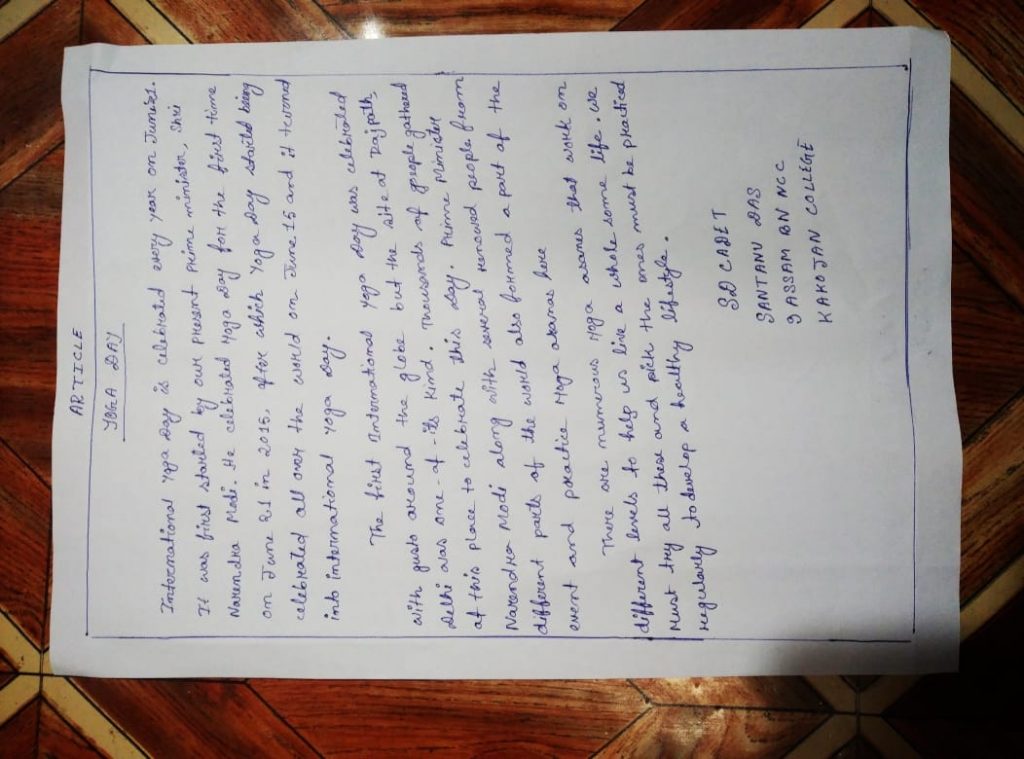 ARTICLE
YOGA DAY
International Yoga Day is celebrated every year on June 21.
It was first started by our present prime minister, Shri
Narendra Modi. He celebrated Yoga Day for the first time
on June 21 in 2015, after which Yoga Day started being
celebrated all over the world on June 15 and it turned
into international Yoga Day.
The first International Yoga Day was celebrated
with gusto around the globe but the site at Rajpath,
Delhi was one-of-its kind. Thousands of people gathered
at this place to celebrate this day. Prime Minister
Narendra Modi along with several renewed people from
different parts of the world also formed a part of the
event and practice Yoga asanas here
There are numerous Yoga asanes that work on
different levels to help us live a whole some life. we
Must try all these and pick the ones must be practiced
regularly to develop a healthy lifestyle.
SD CADET
SANTANU DAS
9 ASSAM BN NCC
KAKOJAN COLLEGE